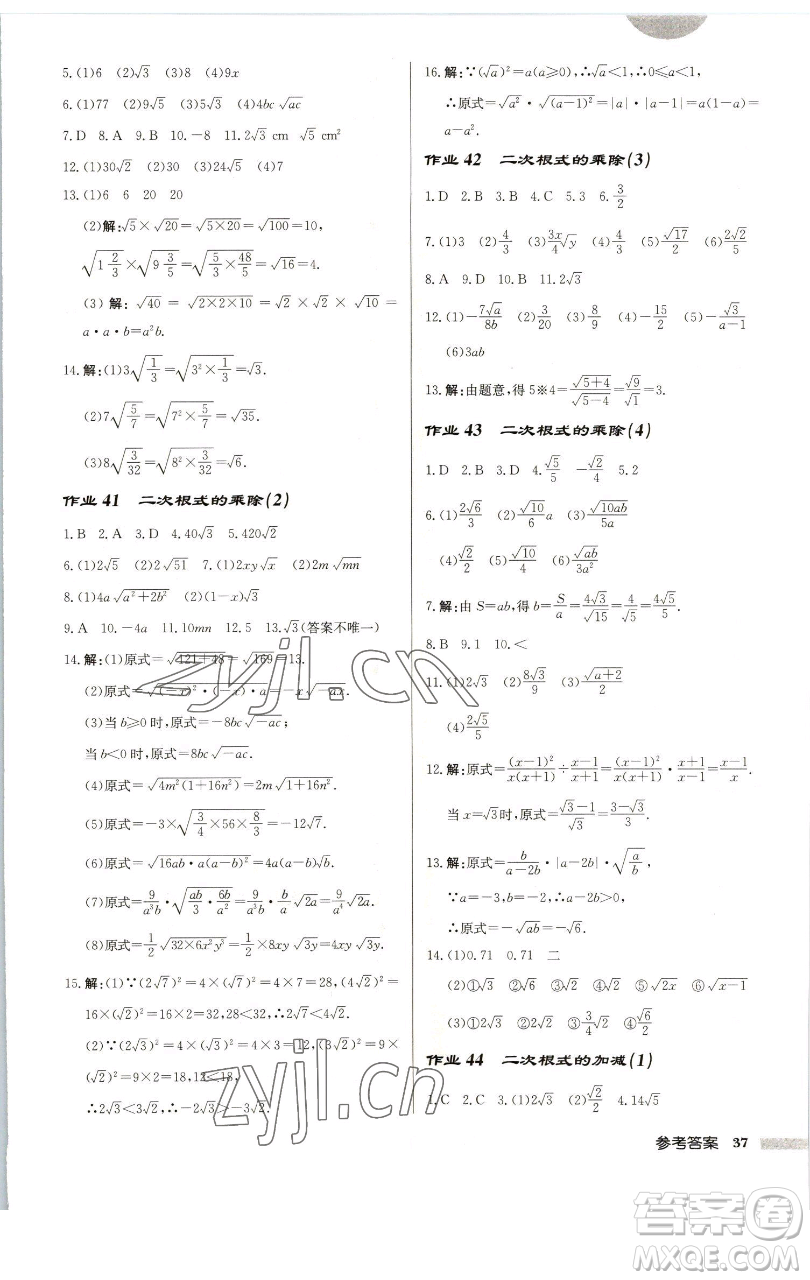 5.(1)6 (2)√3 (3)8 (4)9x
6.(1)77 (2)9√5 (3)5√3 (4)4bc√ac
7.D 8.A 9.B 10.-8 11.2√3 cm √5 cm²
12.(1)30√2 (2)30√3 (3)24√5 (4)6
13.(1)6 6 20 20
(2)解:√5×√20=√(5×20)=√100=10,
√(1 2/3)×√(9 3/5)=√(5/3×48/5)=√16=4.
(3)解:√40=√(2×2×10)=√2×√2×√10=
a·a·b=a²b.
14.解:(1)3√(1/3)=√(3²×1/3)=√3.
(2)7√(5/7)=√(7²×5/7)=√35.
(3)8√(3/32)=√(8²×3/32)=√6.
作业 41 二次根式的乘除(2)
1.B 2.A 3.D 4.40√3 5.420√2
6.(1)2√5 (2)2√51 7.(1)2xy√x (2)2m√mn
8.(1)4a√(a²+2b²) (2)(1-x)√3
9.A 10.-4a 11.10mn 12.5 13.√3(答案不唯一)
14.解:(1)原式=√(121+48)=√169=13.
(2)原式=√(-x)²·(-x)·a=-x√-ax.
(3)当b≥0时,原式=-8bc√-ac;
当b<0时,原式=8bc√-ac.
(4)原式=√(4m²(1+16n²))=2m√(1+16n²).
(5)原式=-3×√(3/4×56×8/3)=-12√7.
(6)原式=√(16ab·a(a-b)²)=4a(a-b)√b.
(7)原式=9/(a³b)·√(ab/3·6b/a²)=9/(a³b)·b/a√2a=9/a⁴√2a.
(8)原式=1/2√(32×6x²y³)=1/2×8xy√3y=4xy√3y.
15.解:(1)∵(2√7)²=4×(√7)²=4×7=28,(4√2)²=
16×(√2)²=16×2=32,28<32,∴2√7<4√2.
(2)∵(2√3)²=4×(√3)²=4×3=12,(3√2)²=9×
(√2)²=9×2=18,12<18,
∴2√3<3√2,∴-2√3>-3√2.
16.解:∵(√a)²=a(a≥0),∴√a<1,∴0≤a<1,
∴原式=√a²·√(a-1)²=|a|·|a-1|=a(1-a)=
a-a².
作业 42 二次根式的乘除(3)
1.D 2.B 3.B 4.C 5.3 6.3/2
7.(1)3 (2)4/3 (3)3x/4√y (4)3/5 (5)√17/2 (6)2√2/5
8.A 9.D 10.B 11.2√3
12.(1)-7√a/8b (2)3/20 (3)8/9 (4)-15/2 (5)-√3/(a-1)
(6)3ab
13.解:由题意,得5※4=√(5+4)/√(5-4)=√9/√1=3.
作业 43 二次根式的乘除(4)
1.D 2.B 3.D 4.√5/5 -√2/4 5.2
6.(1)2√6/3 (2)√10/6 a (3)√10ab/5a
(4)√2/2 (5)√10/4 (6)√ab/3a²
7.解:由S=ab,得b=S/a=4√3/√15=4/√5=4√5/5.
8.B 9.1 10.<
11.(1)2√3 (2)8√3/9 (3)√(a+2)/2
(4)2√5/5
12.解:原式=(x-1)²/x(x+1)÷(x-1)/(x+1)=(x-1)²/x(x+1)·(x+1)/(x-1)=(x-1)/x.
当x=√3时,原式=(√3-1)/√3=(3-√3)/3.
13.解:原式=b/(a-2b)·|a-2b|·√(a/b),
∵a=-3,b=-2,∴a-2b>0,
∴原式=-√ab=-√6.
14.(1)0.71 0.71 二
(2)①√3 ②√6 ③√2 ④√2 ⑤√2x ⑥√(x-1)
(3)①√2/2 ②√3 ③3/4√2 ④√5
作业 44 二次根式的加减(1)
1.C 2.C 3.(1)2√3 (2)√2/2 4.14√5
参考答案 37
zyjl.cn
zyjl.cn
答案卷
MXQE.COM